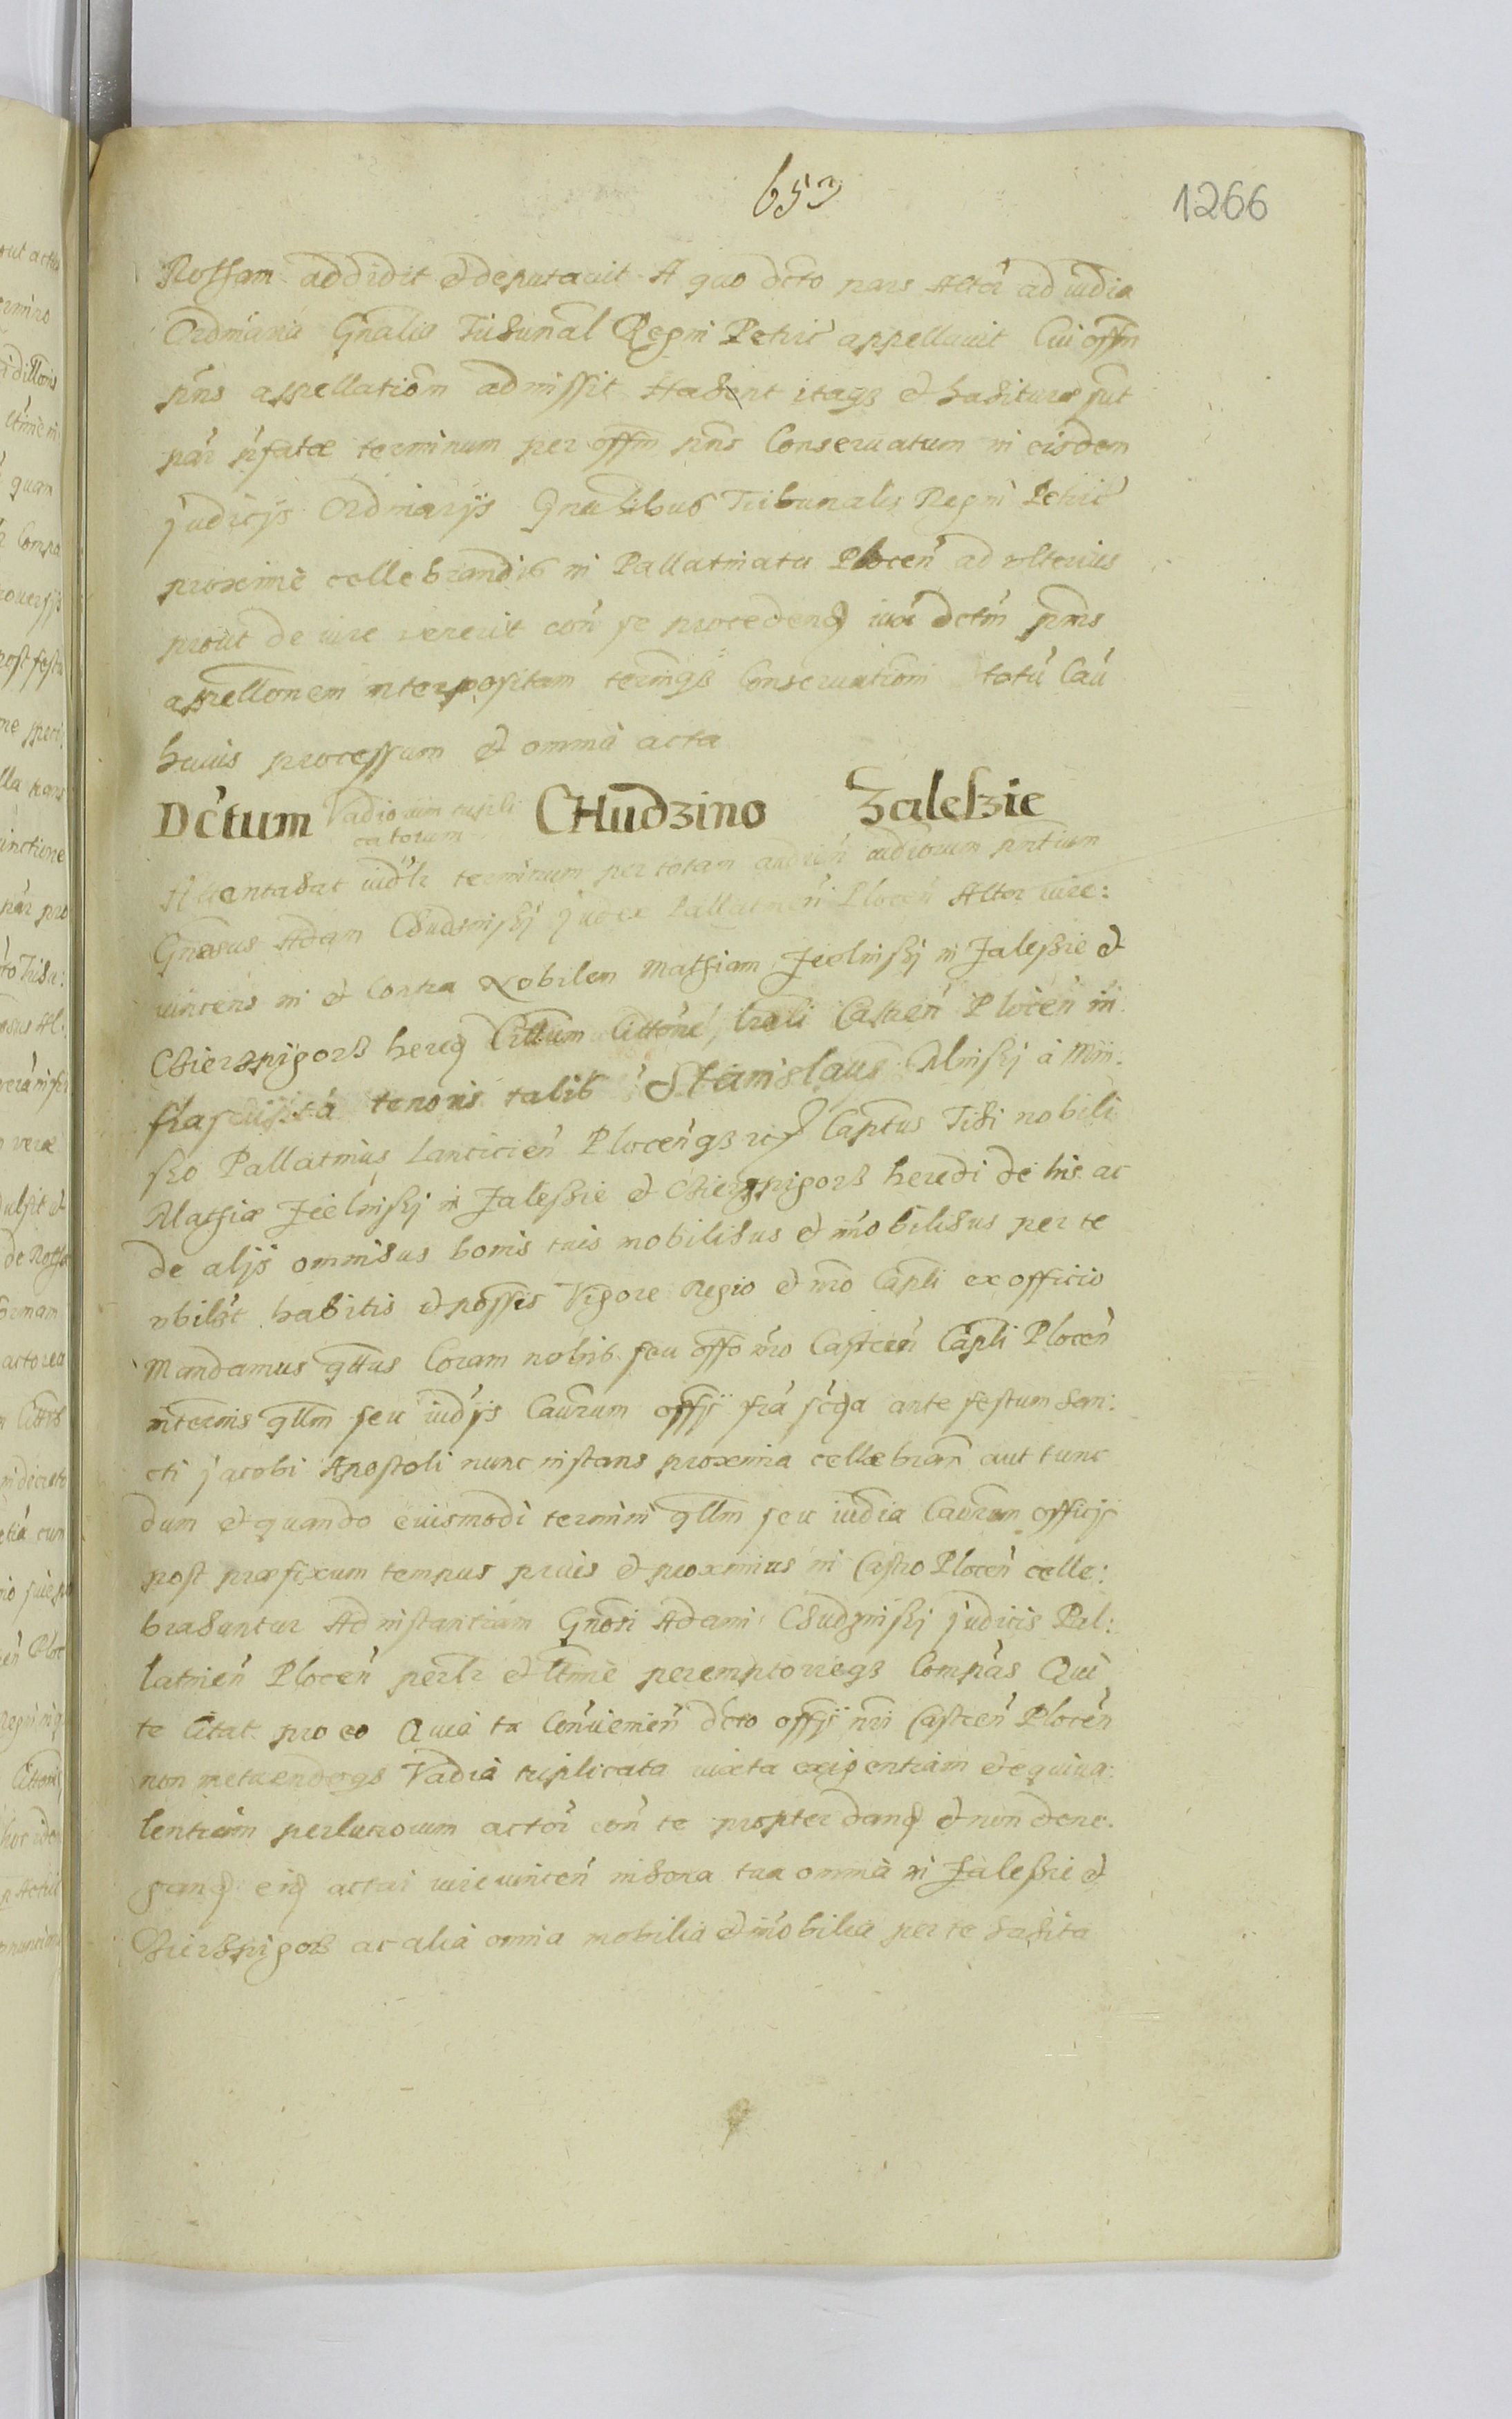 653
1266
Rotham addidit et deputavit A quo dcto pars Actor ad iudia
Ordinaria Gnalia Tribunal Regni Petric appellavit Cui offm
pns appellatiom admissit Habent itaqз et habituræ sut
par pfatæ terminum per offm pns Conservatum in eisdem
judicijs Ordinarijs Gnalibus Tribunalis Regni Petric
proxime cellebrandis in Pallatinatu Plocen ad ulterius
prout de iure venerit con se procedend iux dctm pns
appellonem interpositam terminqз Conservatiom totu Cau
huius processum et omnia acta
Dctum Vadiorum tripli
catorum CHudzino Zaleszie
Attentabat iudlr terminum per totam audien iudiorum pntium
Gnosus Adam Chudzinskj judex Pallatinen Plocen Actor iure:
vincens in et Contra Nobilem Mathiam Zielinskj in Zaleszie et
Chierzpigorz hered Cittum Cittone, lrali Castren Plocen in:
frascripta tenoris talis Stanislaus Minskj à Min:
sko Pallatinus Lancicien Plocenqз Captus Tibi nobili
Mathiæ Zielinskj in Zaleszie et Chierzpigorz heredi de his ac
de alijs omnibus bonis tuis mobilibus et imobilibus per te
ubilbt habitis et possis Vigore Regio et nro Capli ex officio
Mandamus qttus Coram nobis seu offo nro Castren Capli Plocen
in termis qllm seu iudijs Caurum offij fra scda ante festum San:
cti jacobi Apostoli nunc instans proxima cellebran aut tunc
dum et quando eiusmodi termini qllm seu iudia Caurum officij
post præfixum tempus prius et proximius in Castro Plocen celle:
brabuntur Ad instantiam Gnosi Adami Chudzinskj judicis Pal:
latinen Plocen perlr et ltime peremptorieqз Compas Qui
te Citat pro eo Quia tu Convenien dcto offij nri Castren Plocen
non metuendoqз Vadia triplicata iuxta exigentiam et equiva:
lentiam perlucrorum actor con te propter dand et non dene:
gand eid actori iurevincen in bona tua omnia in Zaleszie et
Chierzpigorz ac alia omnia mobilia et imobilia per te habita